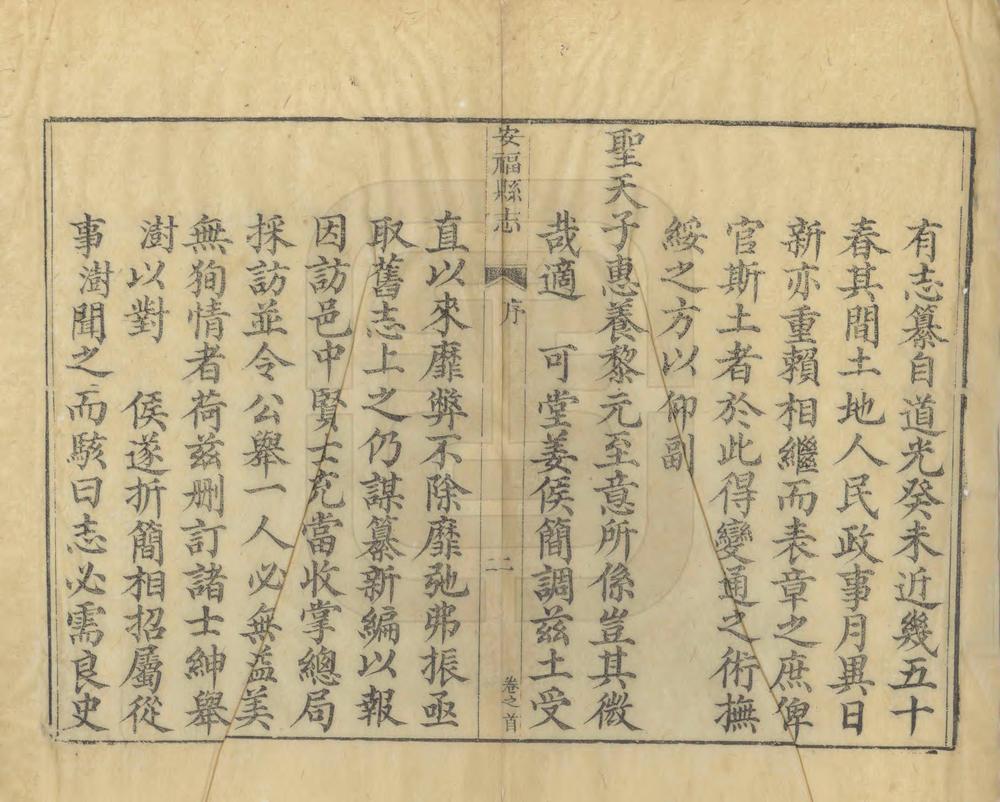 有志纂自道光癸未近幾五十
春其間土地人民政事月異日
新亦重賴相繼而表章之庶俾
官斯土者於此得變通之術撫
綏之方以仰副
聖天子惠養黎元至意所係豈其微
哉適 可堂姜侯簡調茲土受
安福縣志 序 二 卷之首
直以來靡弊不除靡弛弗振亟
取舊志上之仍謀纂新編以報
因訪邑中賢士充當收掌總局
採訪並令公舉一人必無溢美
無狥情者荷茲刪訂諸士紳舉
澍以對 侯遂折簡相招屬從
事澍聞之而駭曰志必需良史